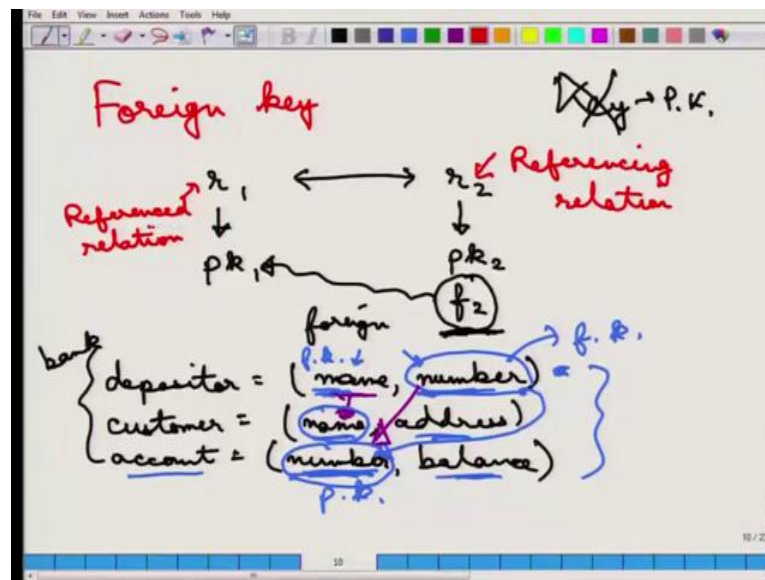 File Edit View Insert Actions Tools Help
Foreign key
Key → P.K.
r1 ↔ r2
Referencing relation
Referenced relation
pk1
pk2
f2
foreign
bank
p.k.
f.k.
depositor = (name, number)
customer = (name, address)
account = (number, balance)
p.k.
10
10 / 2